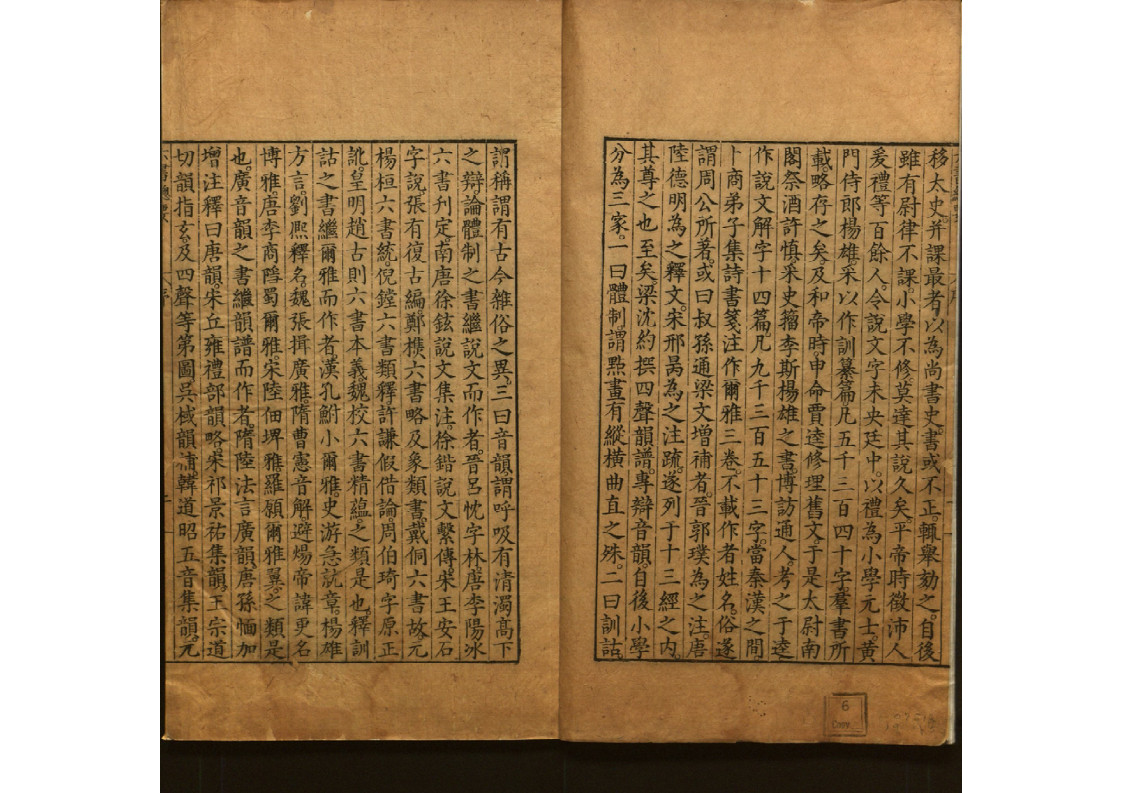 移太史并課最者以為尚書史書或不正輒舉劾之自後
雖有尉律不課小學不修莫達其說久矣平帝時徵沛人
爰禮等百餘人令說文字未央廷中以禮為小學元士黃
門侍郎楊雄采以作訓纂篇凡五千三百四十字羣書所
載略存之矣及和帝時申命賈逵修理舊文于是太尉南
閣祭酒許慎采史籒李斯揚雄之書博訪通人考之于逵
作說文解字十四篇凡九千三百五十三字當秦漢之間
卜商弟子集詩書箋注作爾雅三卷不載作者姓名俗遂
謂周公所著或曰叔孫通梁文增補者晉郭璞為之注唐
陸德明為之釋文宋邢昺為之注疏遂列于十三經之內
其尊之也至矣梁沈約撰四聲韻譜專辯音韻自後小學
分為三家一曰體制謂㸃畫有縱橫曲直之殊二曰訓詁
謂稱謂有古今雅俗之異三曰音韻謂呼吸有清濁高下
之辯論體制之書繼說文而作者晉呂忱字林唐李陽冰
六書刋定南唐徐鉉說文集注徐鍇說文繫傳宋王安石
字說張有復古編鄭樵六書略及象類書戴侗六書故元
楊桓六書統倪鏜六書類釋許謙假借論周伯琦字原正
訛皇明趙古則六書本義魏校六書精蘊之類是也釋訓
詁之書繼爾雅而作者漢孔鮒小爾雅史游急就章楊雄
方言劉熙釋名魏張揖廣雅隋曹憲音解避煬帝諱更名
博雅唐李商隱蜀爾雅宋陸佃埤雅羅願爾雅翼之類是
也廣音韻之書繼韻譜而作者隋陸法言廣韻唐孫愐加
增注釋曰唐韻宋丘雍禮部韻略宋祁景祐集韻王宗道
切韻指玄及四聲等第圖吳棫韻補韓道昭五音集韻元
6